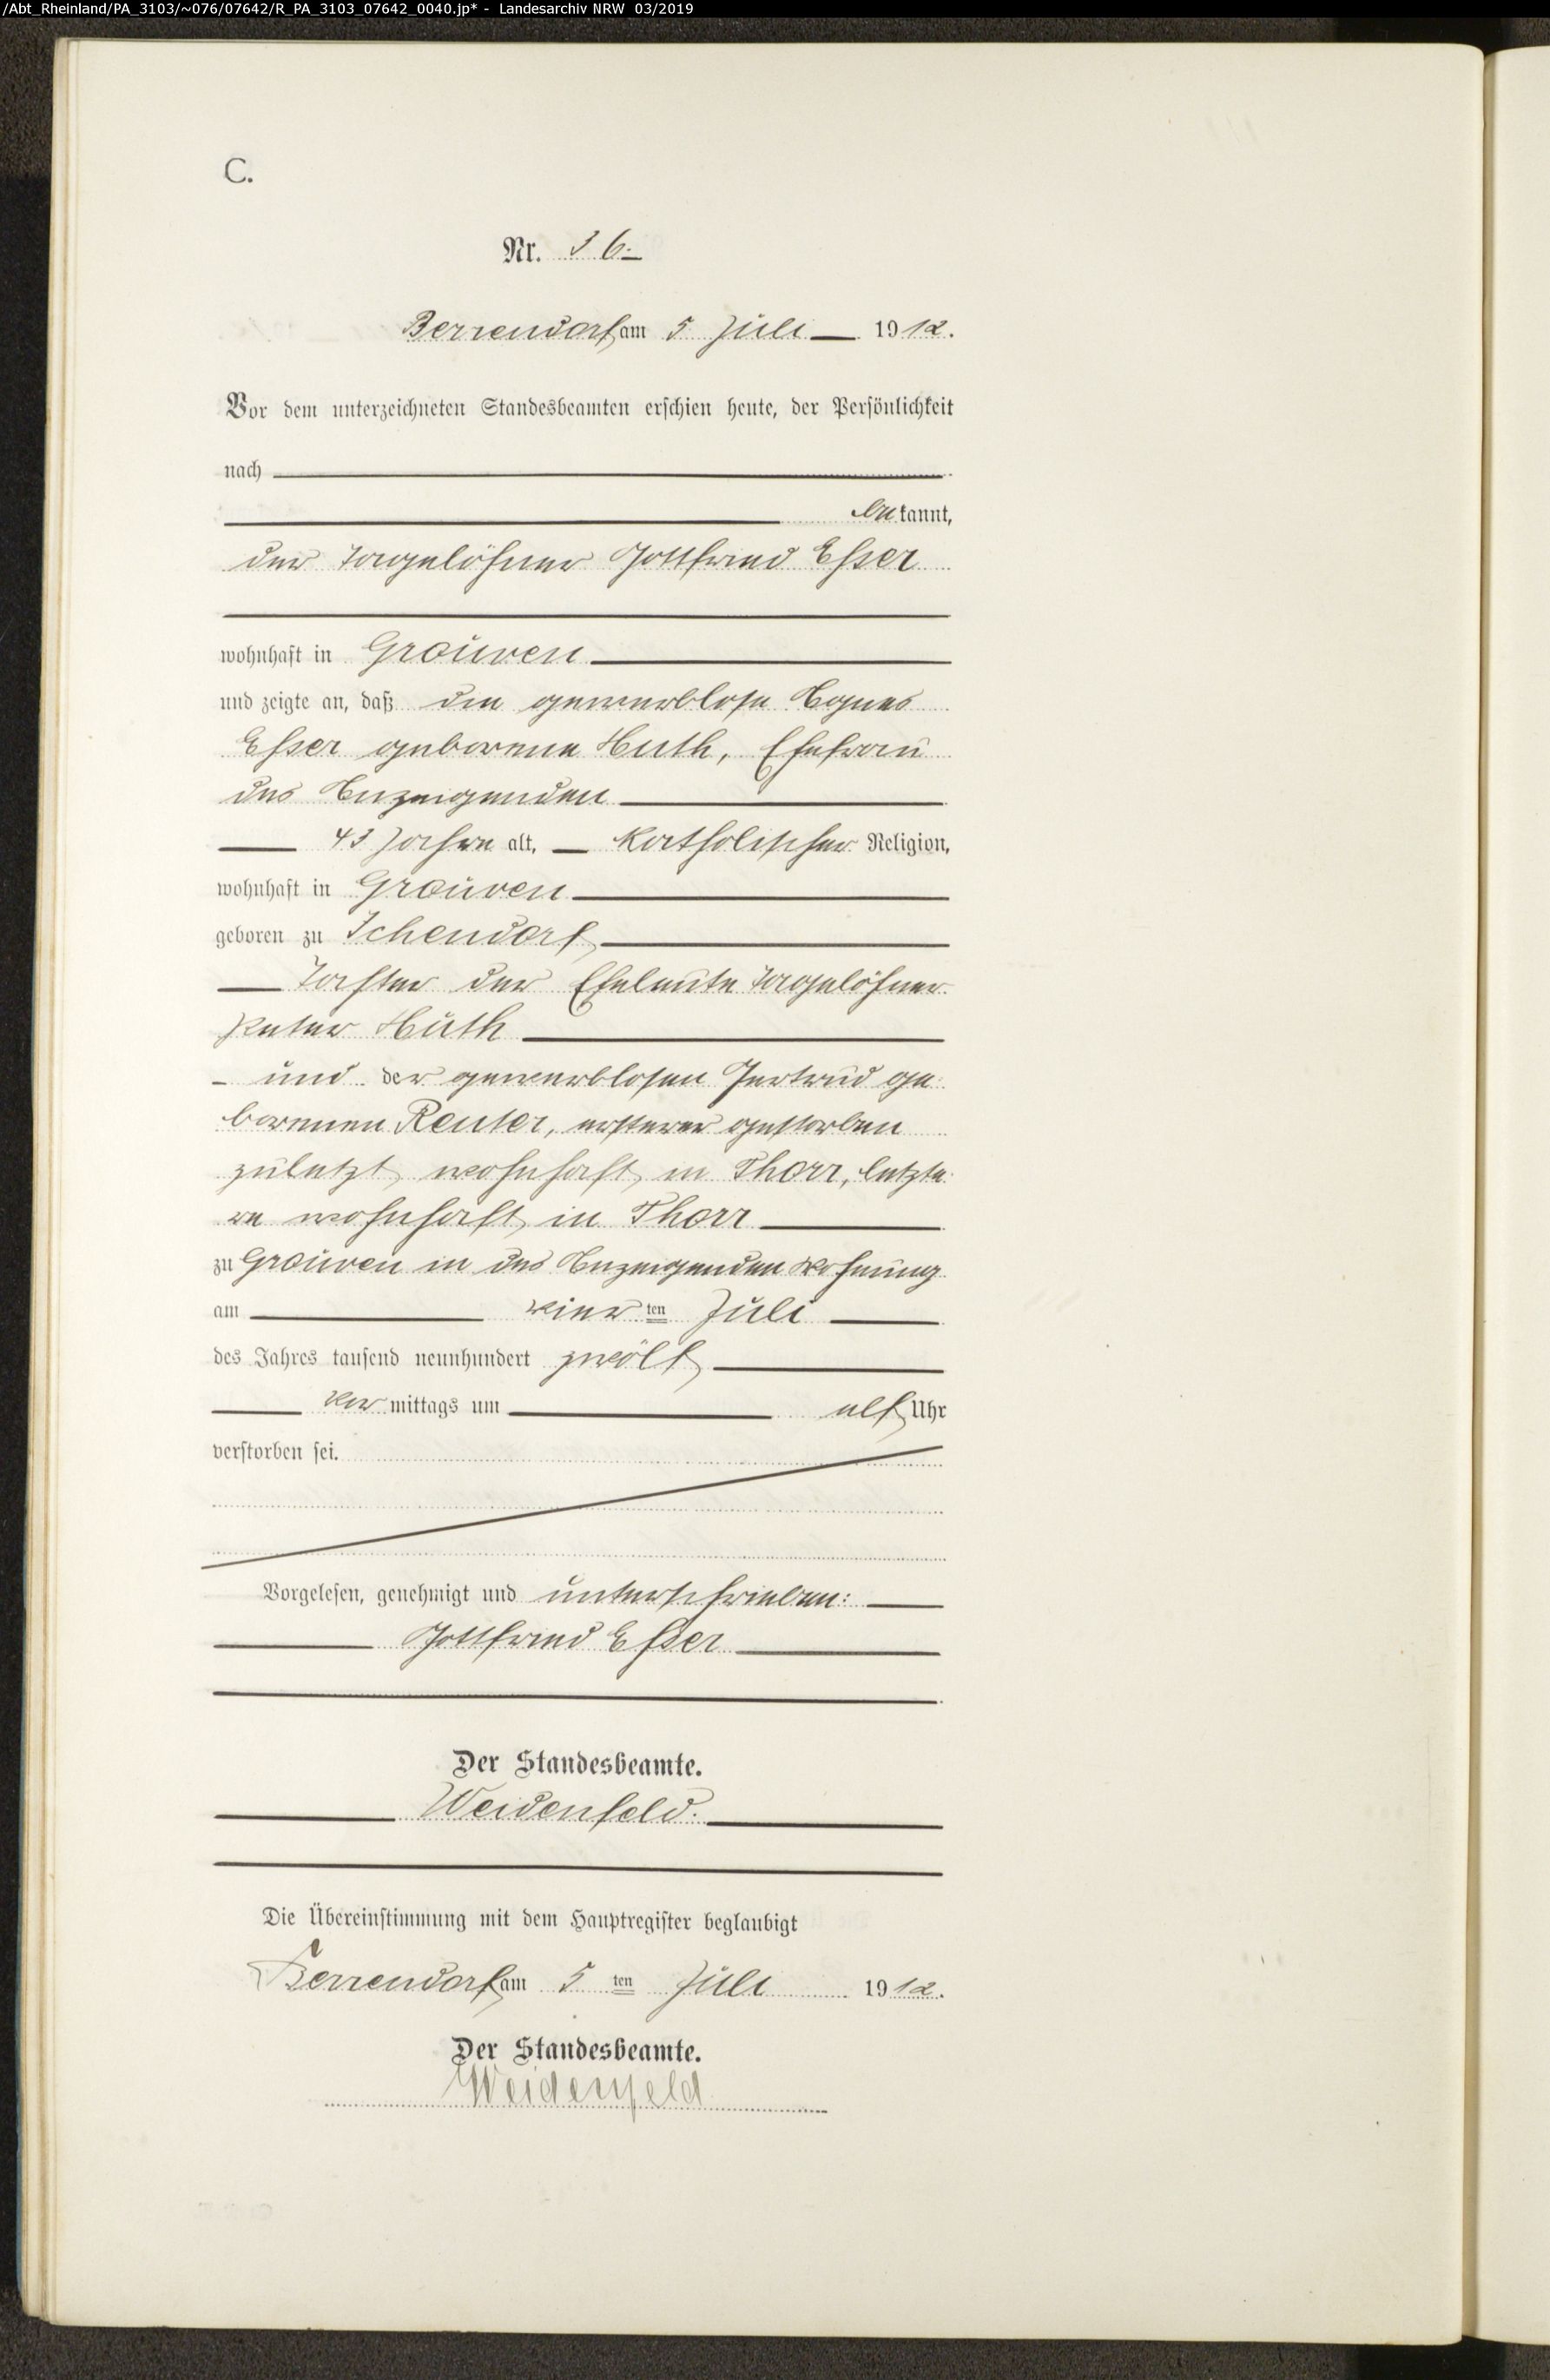 /Abt_Rheinland/PA_3103/~076/07642/R_PA_3103_07642_0040.jp* - Landesarchiv NRW 03/2019
C.
Nr. 36.
Berrendorf am 5 Juli 1912.
Vor dem unterzeichneten Standesbeamten erschien heute, der Persönlichkeit
nach
bekannt,
der Tagelöhner Gottfried Esser
wohnhaft in Grouwen
und zeigte an, daß die gewerblose Agnes
Esser geborene Huth, Ehefrau
des Anzeigenden
43 Jahre alt, katholischer Religion,
wohnhaft in Grouwen
geboren zu Ichendorf,
Tochter der Eheleute Tagelöhner
Peter Huth
und der gewerblosen Gertrud ge
borenen Reuter, ersterer gestorben
zuletzt wohnhaft in Thorr, letzte
re wohnhaft in Thorr
zu Grouwen in des Anzeigenden Wohnung
am vier ten Juli
des Jahres tausend neunhundert zwölf
vor mittags um elf Uhr
verstorben sei.
Vorgelesen, genehmigt und unterschrieben:
Gottfried Esser
Der Standesbeamte.
Weidenfeld.
Die Übereinstimmung mit dem Hauptregister beglaubigt
Berrendorf am 5 ten Juli 1912.
Der Standesbeamte.
Weidenfeld